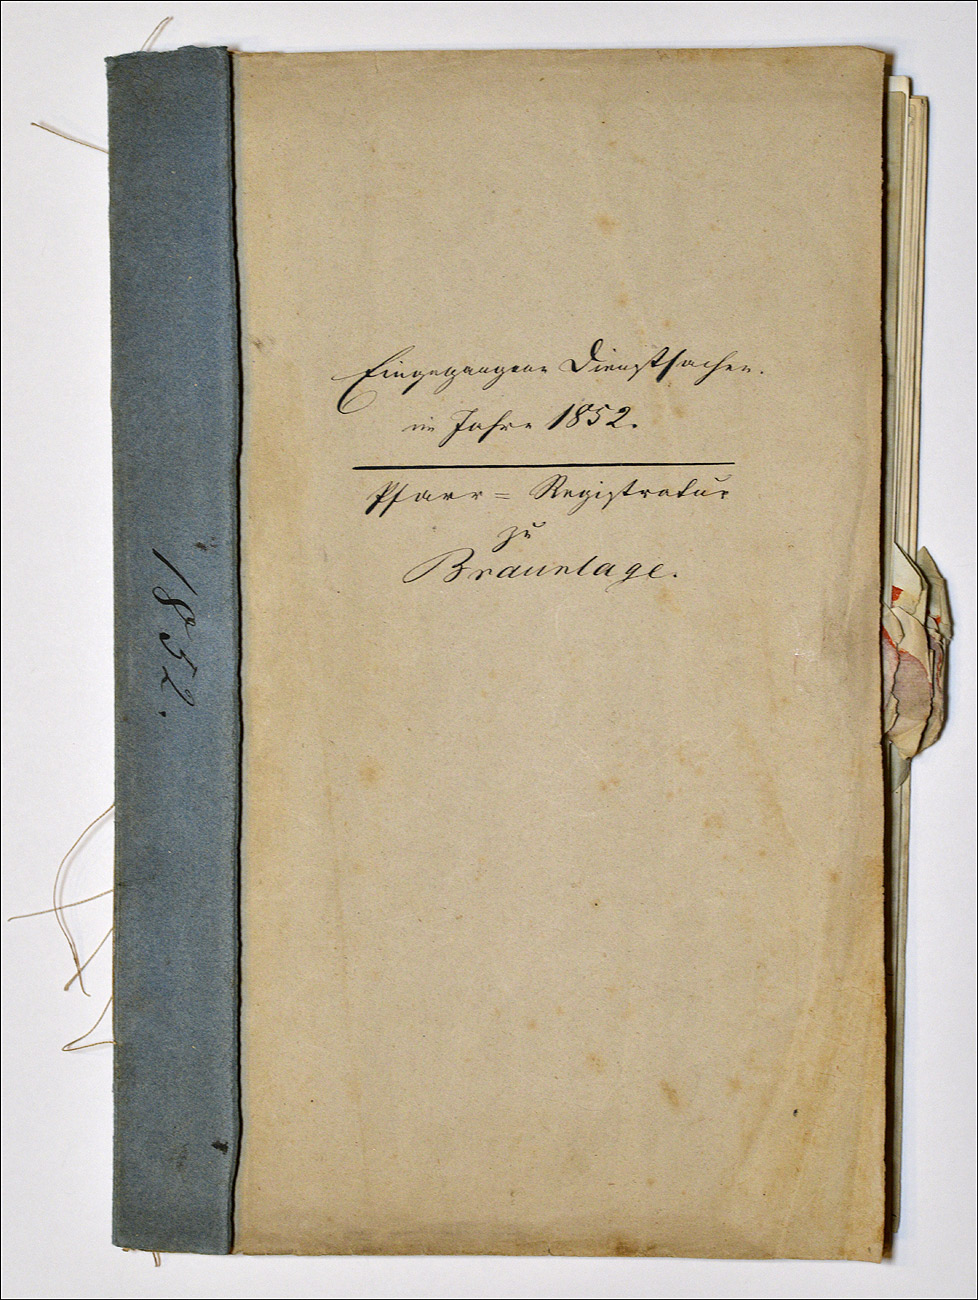 Eingegangene Dienstsachen.
im Jahre 1852.
Pfarr = Registratur
zu
Braunlage.
1852.